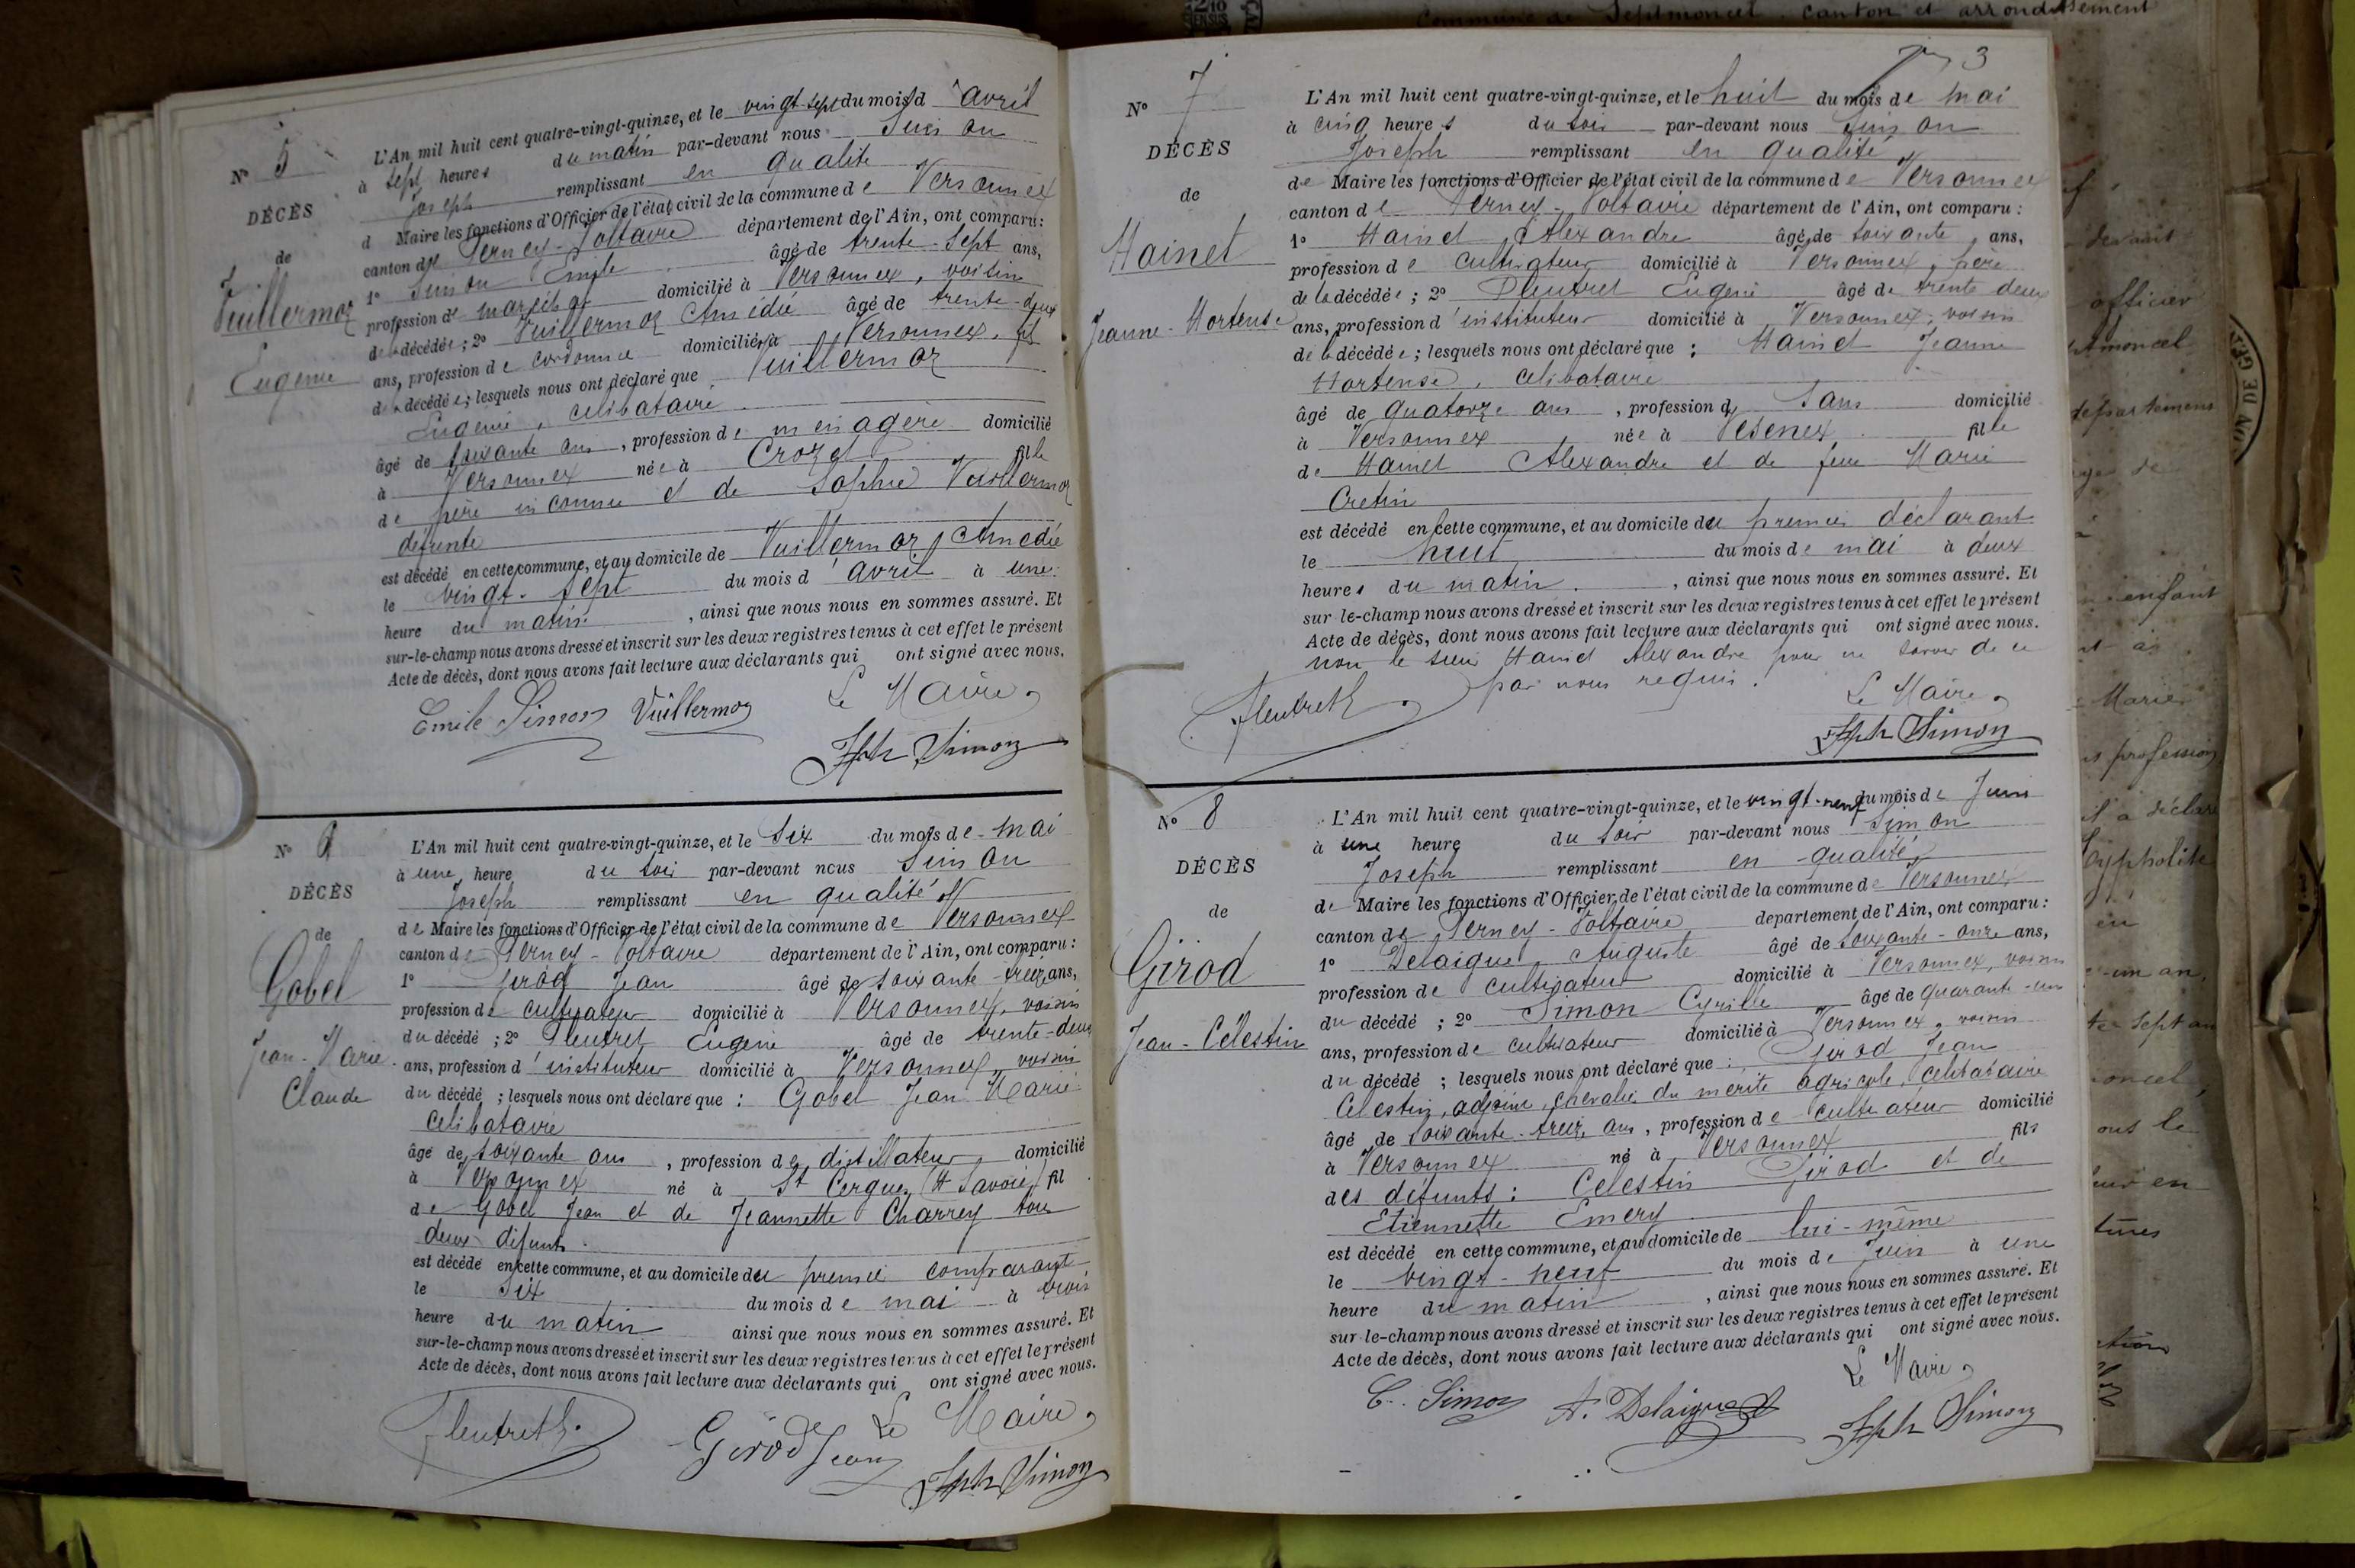 N° 5
DÉCÈS
de
Vuillermoz
Eugénie
L'An mil huit cent quatre-vingt-quinze, et le vingt-sept du mois d'avril
à sept heures du matin par-devant nous Simon
Joseph remplissant en qualité
d Maire les fonctions d'Officier de l'état civil de la commune de Versonnex
canton de Ferney-Voltaire département de l'Ain, ont comparu :
1° Simon Emile âgé de trente-sept ans,
profession de maréchal domicilié à Versonnex, voisin
de la décédée ; 2° Vuillermoz Amédée âgé de trente-deux
ans, profession de cordonnier domicilié à Versonnex, fils
de la décédée ; lesquels nous ont déclaré que Vuillermoz
Eugénie, célibataire
âgé de soixante ans, profession de ménagère domicilié
à Versonnex née à Crozet fille
de père inconnu et de Sophie Vuillermoz
défunte
est décédé en cette commune, et au domicile de Vuillermoz Amédée
le vingt-sept du mois d'avril à une
heure du matin, ainsi que nous nous en sommes assuré. Et
sur-le-champ nous avons dressé et inscrit sur les deux registres tenus à cet effet le présent
Acte de décès, dont nous avons fait lecture aux déclarants qui ont signé avec nous.
Le Maire,
Emile Simon Vuillermoz
Jph Simon
N° 6
DÉCÈS
de
Gobel
Jean-Marie
Claude
L'An mil huit cent quatre-vingt-quinze, et le six du mois de mai
à une heure du soir par-devant nous Simon
Joseph remplissant en qualité
de Maire les fonctions d'Officier de l'état civil de la commune de Versonnex
canton de Ferney-Voltaire département de l'Ain, ont comparu :
1° Girod Jean âgé de soixante-treize ans,
profession de cultivateur domicilié à Versonnex, voisin
du décédé ; 2° Fleutret Eugène âgé de trente-deux
ans, profession d'instituteur domicilié à Versonnex voisin
du décédé ; lesquels nous ont déclaré que : Gobel Jean Marie
célibataire
âgé de soixante ans, profession de distillateur, domicilié
à Versonnex né à St Cergues (Hte Savoie) fil
de Gobel Jean et de Jeannette Charrey tous
deux défunts.
est décédé en cette commune, et au domicile du premier comparant
le six du mois de mai à trois
heure du matin ainsi que nous nous en sommes assuré. Et
sur-le-champ nous avons dressé et inscrit sur les deux registres tenus à cet effet le présent
Acte de décès, dont nous avons fait lecture aux déclarants qui ont signé avec nous.
Le Maire,
Fleutret Girod Jean
Jph Simon
3
N° 7
DÉCÈS
de
Hainet
Jeanne-Hortense
L'An mil huit cent quatre-vingt-quinze, et le huit du mois de mai
à cinq heures du soir par-devant nous Simon
Joseph remplissant en qualité
de Maire les fonctions d'Officier de l'état civil de la commune de Versonnex
canton de Ferney-Voltaire département de l'Ain, ont comparu :
1° Hainet Alexandre âgé de soixante ans,
profession de cultivateur domicilié à Versonnex, père
de la décédée ; 2° Fleutret Eugène âgé de trente deux
ans, profession d'instituteur domicilié à Versonnex, voisin
de la décédée ; lesquels nous ont déclaré que : Hainet Jeanne
Hortense, célibataire
âgé de quatorze ans, profession de sans domicilié
à Versonnex née à Vesenex fille
de Hainet Alexandre et de feue Marie
Cretin
est décédé en cette commune, et au domicile du premier déclarant
le huit du mois de mai à deux
heures du matin, ainsi que nous nous en sommes assuré. Et
sur-le-champ nous avons dressé et inscrit sur les deux registres tenus à cet effet le présent
Acte de décès, dont nous avons fait lecture aux déclarants qui ont signé avec nous.
non le sieur Hainet Alexandre pour ne savoir de ce
par nous requis.
Le Maire,
Fleutret
Jph Simon
N° 8
DÉCÈS
de
Girod
Jean-Célestin
L'An mil huit cent quatre-vingt-quinze, et le vingt-neuf du mois de Juin
à une heure du soir par-devant nous Simon
Joseph remplissant en qualité
de Maire les fonctions d'Officier de l'état civil de la commune de Versonnex
canton de Ferney-Voltaire département de l'Ain, ont comparu :
1° Delaigue Auguste âgé de soixante-onze ans,
profession de cultivateur domicilié à Versonnex, voisin
du décédé ; 2° Simon Cyrille âgé de quarante-un
ans, profession de cultivateur domicilié à Versonnex, voisin
du décédé ; lesquels nous ont déclaré que : Girod Jean
Célestin, adjoint, chevalier du mérite agricole, célibataire
âgé de soixante-treize ans, profession de cultivateur domicilié
à Versonnex né à Versonnex fils
des défunts : Célestin Girod et de
Etiennette Emery
est décédé en cette commune, et au domicile de lui-même
le vingt-neuf du mois de Juin à une
heure du matin, ainsi que nous nous en sommes assuré. Et
sur-le-champ nous avons dressé et inscrit sur les deux registres tenus à cet effet le présent
Acte de décès, dont nous avons fait lecture aux déclarants qui ont signé avec nous.
Le Maire,
C. Simon A. Delaigue
Jph Simon
Commune de Septmoncel canton et arrondissement
officier
enfant
Marie
profession
il a déclaré
Hyppolite
un an,
sept an